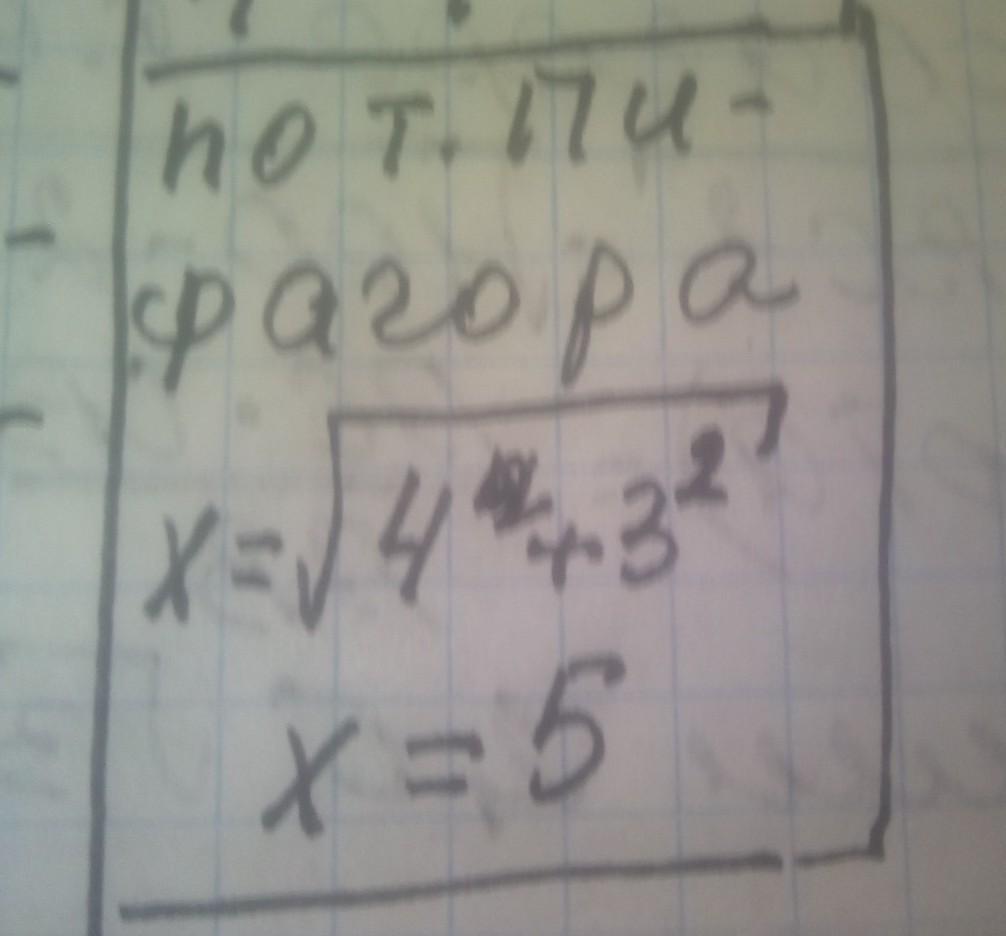 по т. Пи-
фагора
x=√4²+3²
x=5